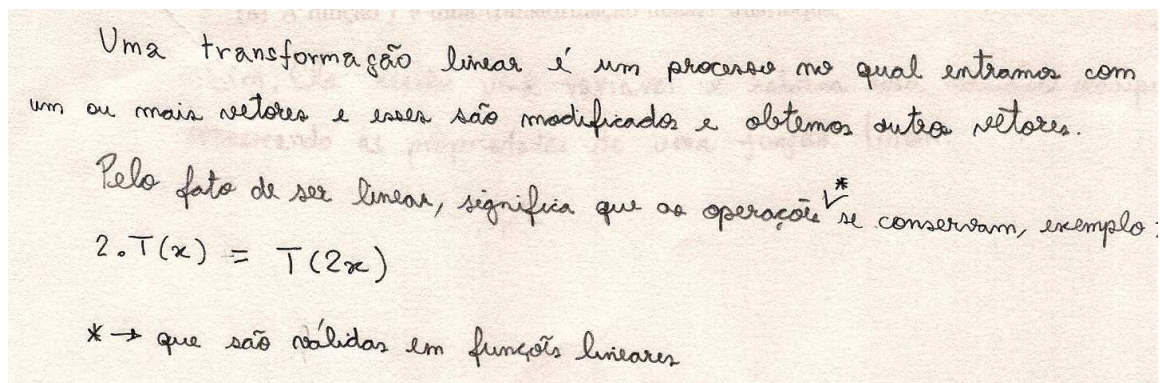 Uma transformação linear é um processo no qual entramos com
um ou mais vetores e esses são modificados e obtemos outros vetores.
Pelo fato de ser linear, significa que as operações * se conservam, exemplo:
2.T(x) = T(2x)
* → que são válidas em funções lineares